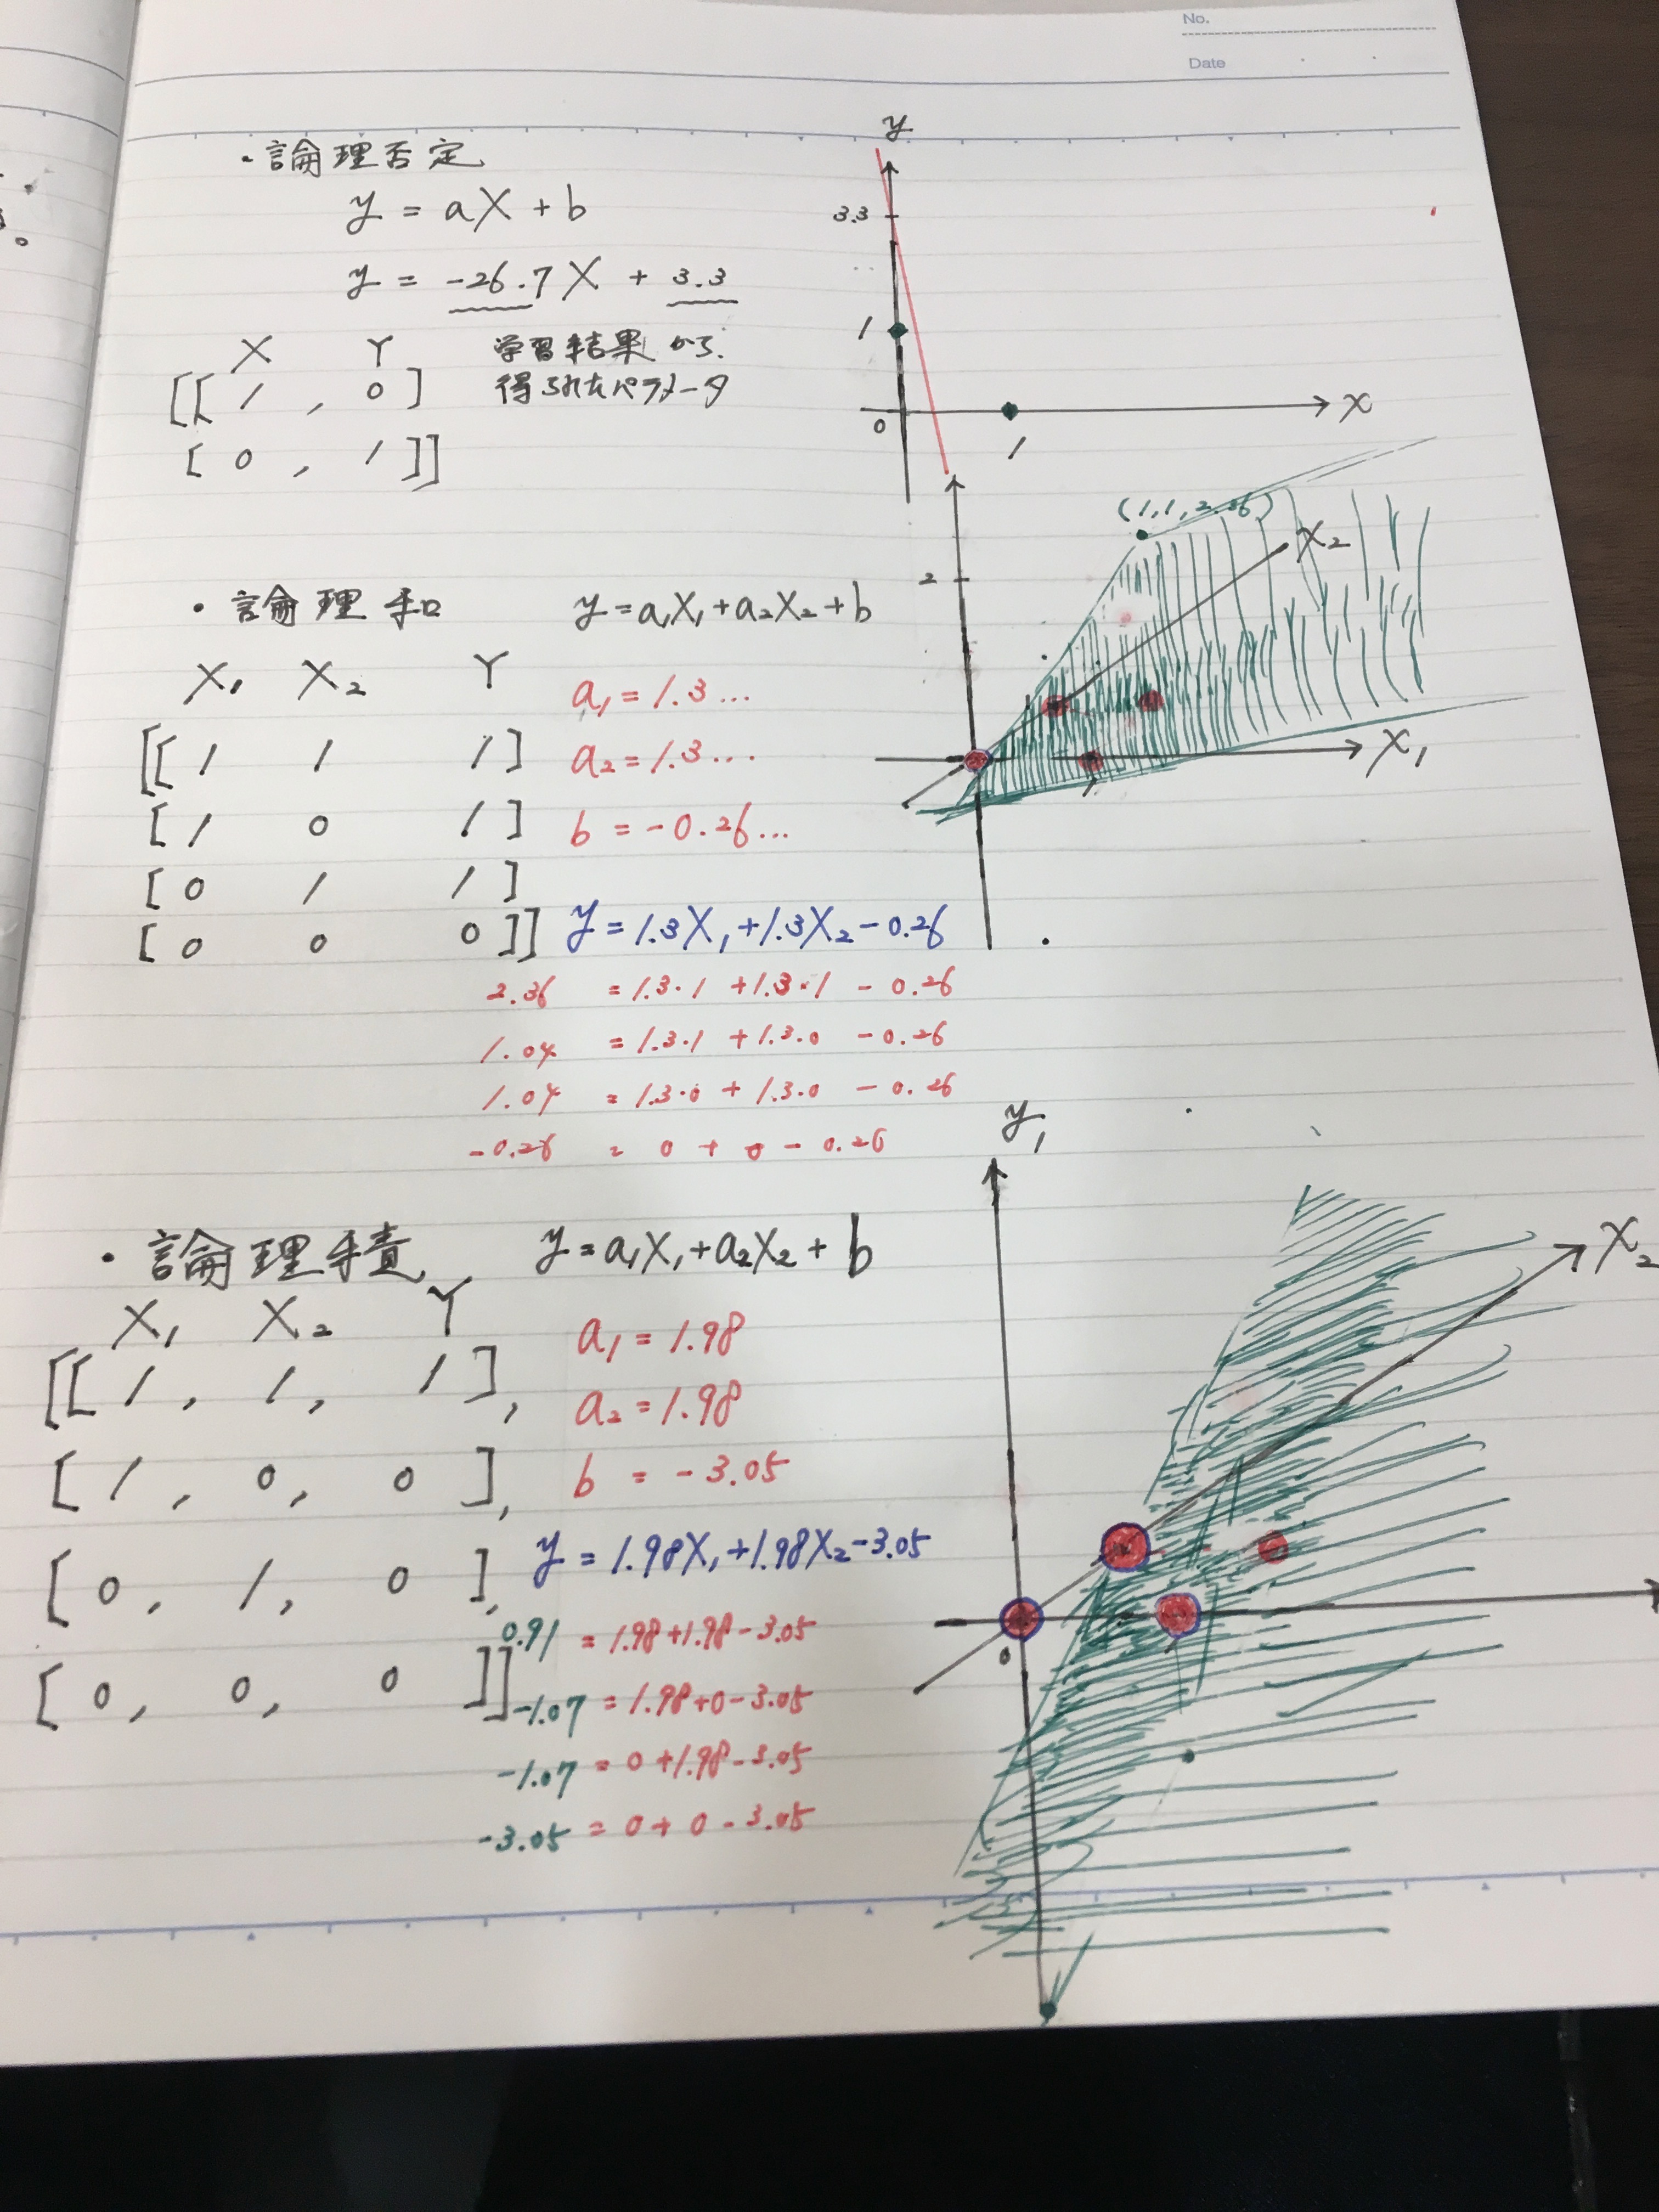 No.
Date
・論理否定
y = aX + b
y = -26.7X + 3.3
X Y
[[ 1 , 0 ]
[ 0 , 1 ]]
学習結果から
得られたパラメータ
y
3.3
1
0
1
x
・論理和 y = a₁X₁ + a₂X₂ + b
X₁ X₂ Y
[[ 1 1 1 ]
[ 1 0 1 ]
[ 0 1 1 ]
[ 0 0 0 ]]
a₁ = 1.3...
a₂ = 1.3...
b = -0.26...
y = 1.3X₁ + 1.3X₂ - 0.26
2.36 = 1.3・1 + 1.3・1 - 0.26
1.04 = 1.3・1 + 1.3・0 - 0.26
1.04 = 1.3・0 + 1.3・0 - 0.26
-0.26 = 0 + 0 - 0.26
(1,1,2.36)
X₂
2
X₁
1
・論理積 y = a₁X₁ + a₂X₂ + b
X₁ X₂ Y
[[ 1 , 1 , 1 ],
[ 1 , 0 , 0 ],
[ 0 , 1 , 0 ],
[ 0 , 0 , 0 ]]
a₁ = 1.98
a₂ = 1.98
b = -3.05
y = 1.98X₁ + 1.98X₂ - 3.05
0.91 = 1.98 + 1.98 - 3.05
-1.07 = 1.98 + 0 - 3.05
-1.07 = 0 + 1.98 - 3.05
-3.05 = 0 + 0 - 3.05
y₁
X₂
0